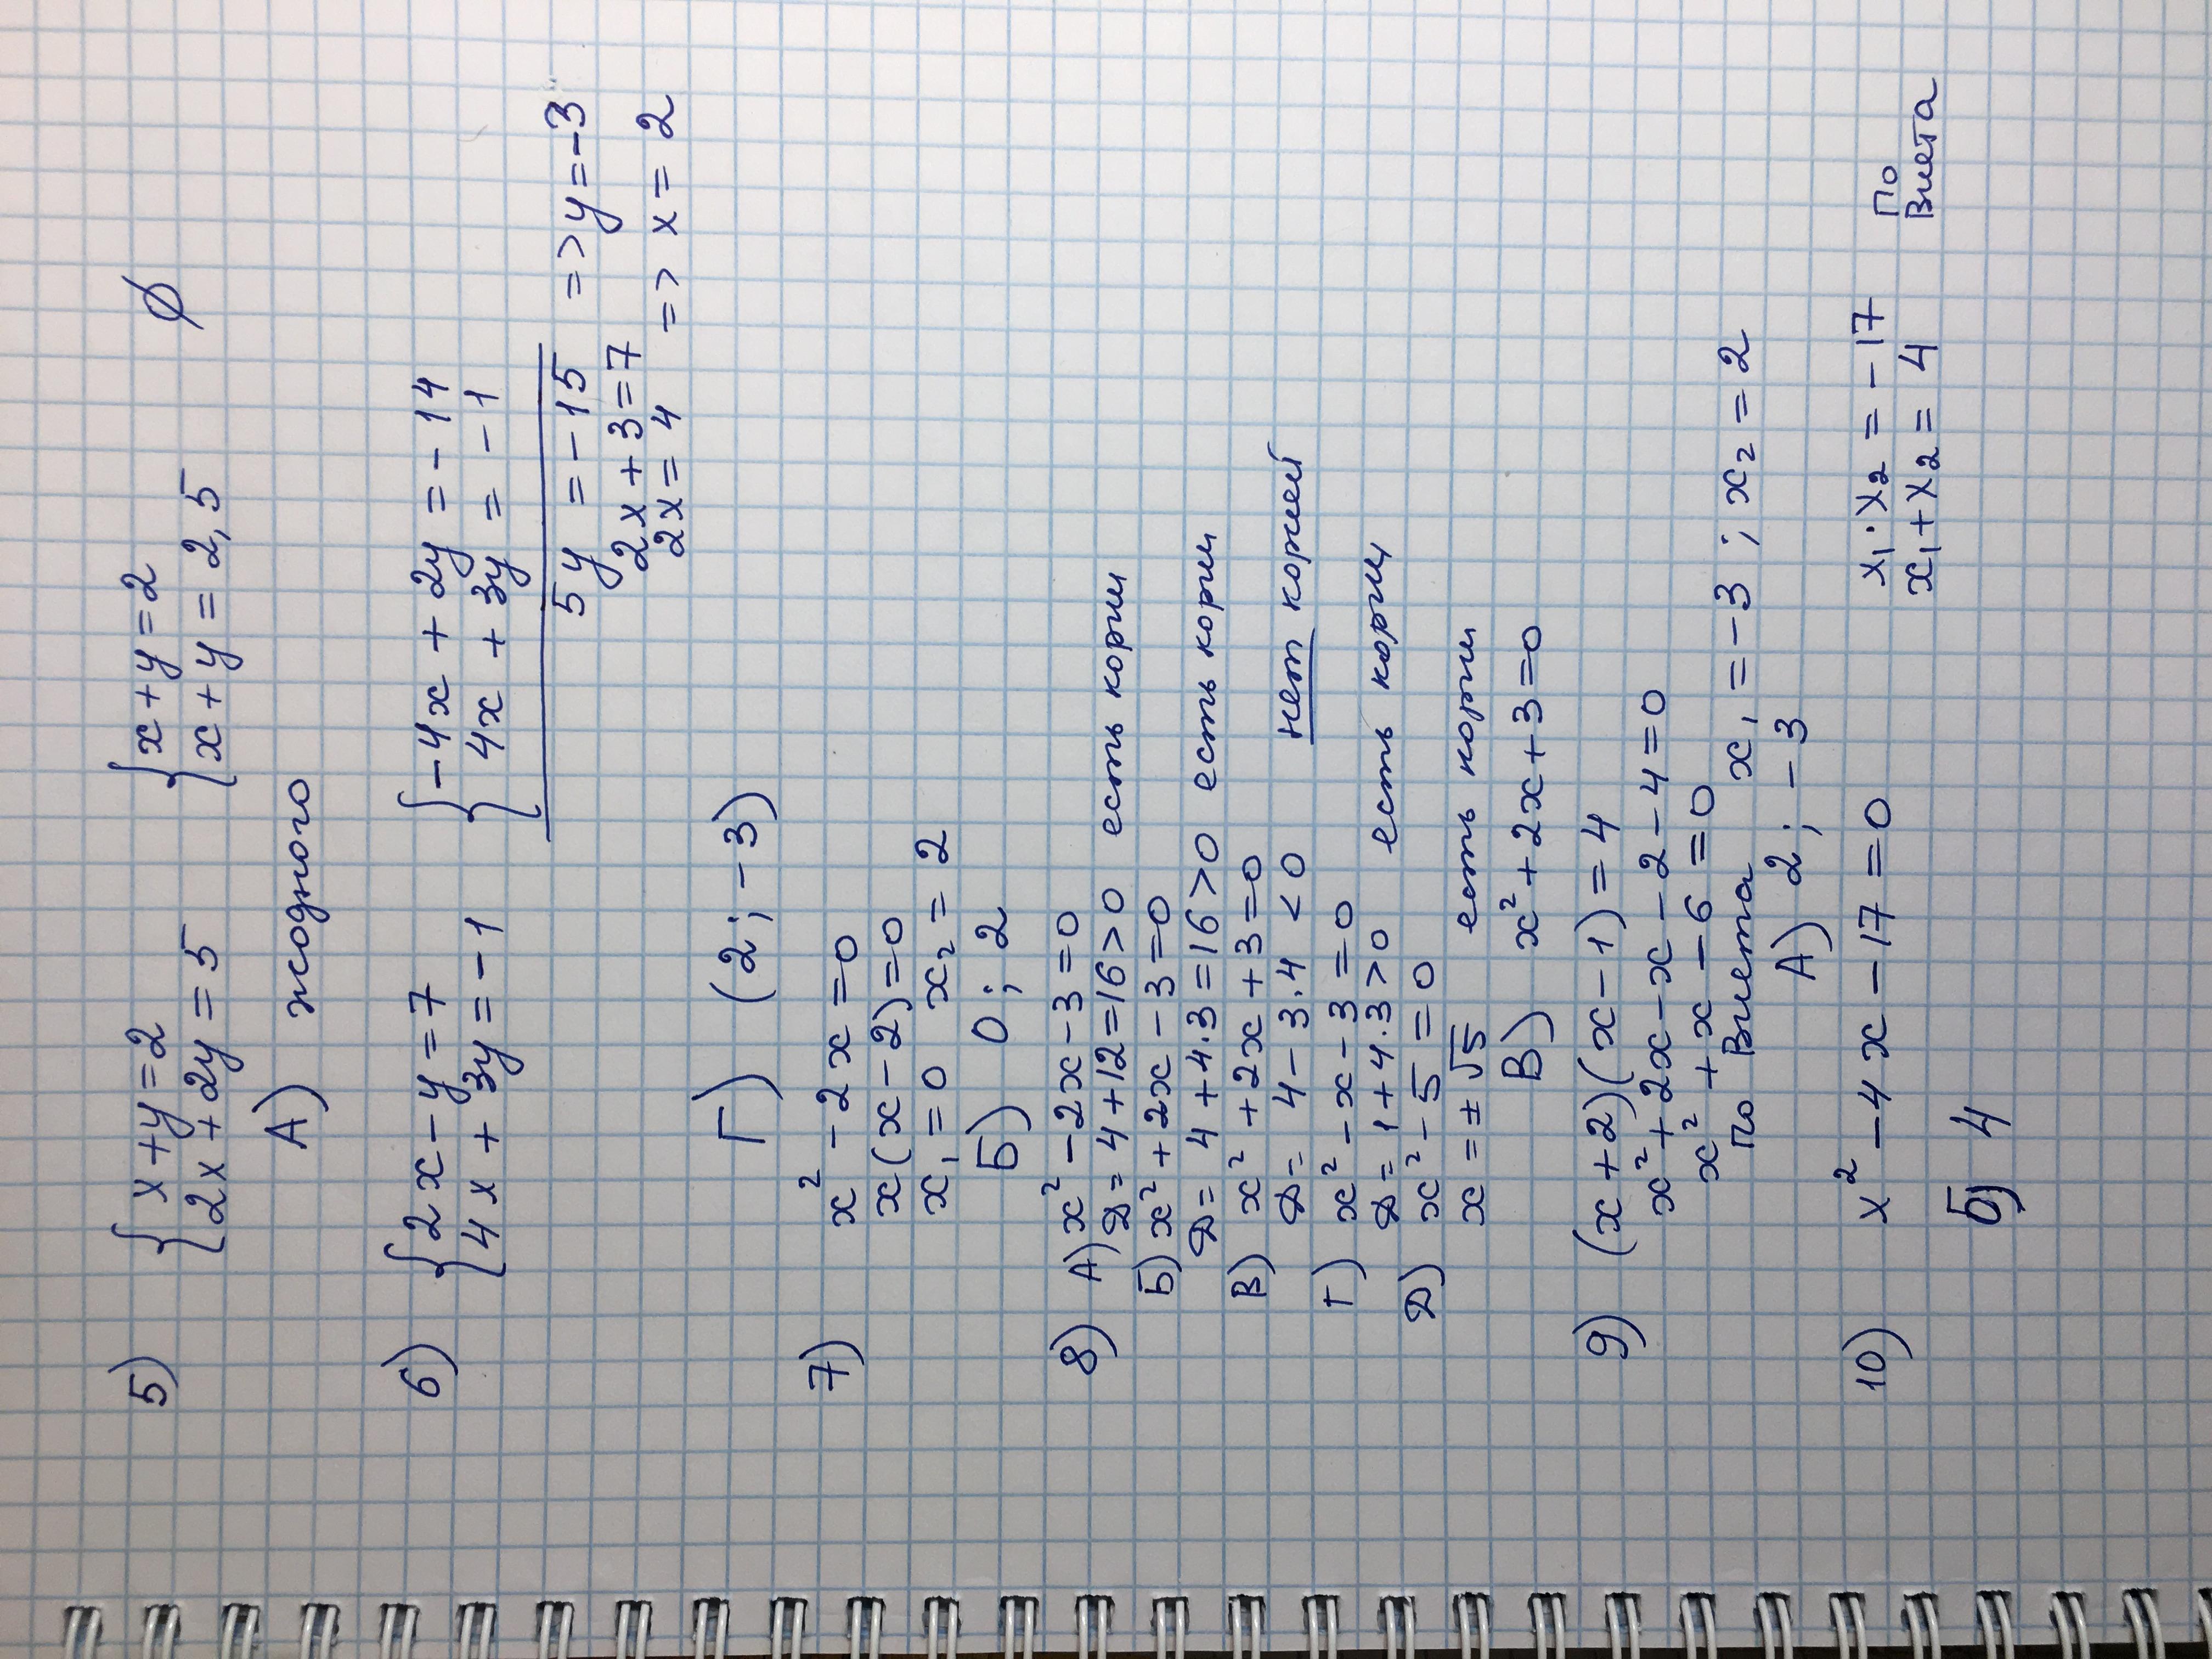 5) { x+y=2 { x+y=2 ∅
2x+2y=5 x+y=2,5
А) жодного
6) { 2x-y=7 { -4x+2y=-14
4x+3y=-1 4x+3y=-1
5y =-15 => y=-3
2x+3=7
2x=4 => x=2
Г) (2;-3)
7) x²-2x=0
x(x-2)=0
x₁=0 x₂=2
Б) 0; 2
8) А) x²-2x-3=0
Д=4+12=16>0 есть корни
Б) x²+2x-3=0
Д=4+4·3=16>0 есть корни
В) x²+2x+3=0
Д=4-3·4<0 нет корней
Г) x²-x-3=0
Д=1+4·3>0 есть корни
Д) x²-5=0
x=±√5 есть корни
В) x²+2x+3=0
9) (x+2)(x-1)=4
x²+2x-x-2-4=0
x²+x-6=0
по Виета x₁=-3; x₂=2
А) 2; -3
10) x²-4x-17=0 x₁·x₂=-17 По
x₁+x₂=4 Виета
Б) 4